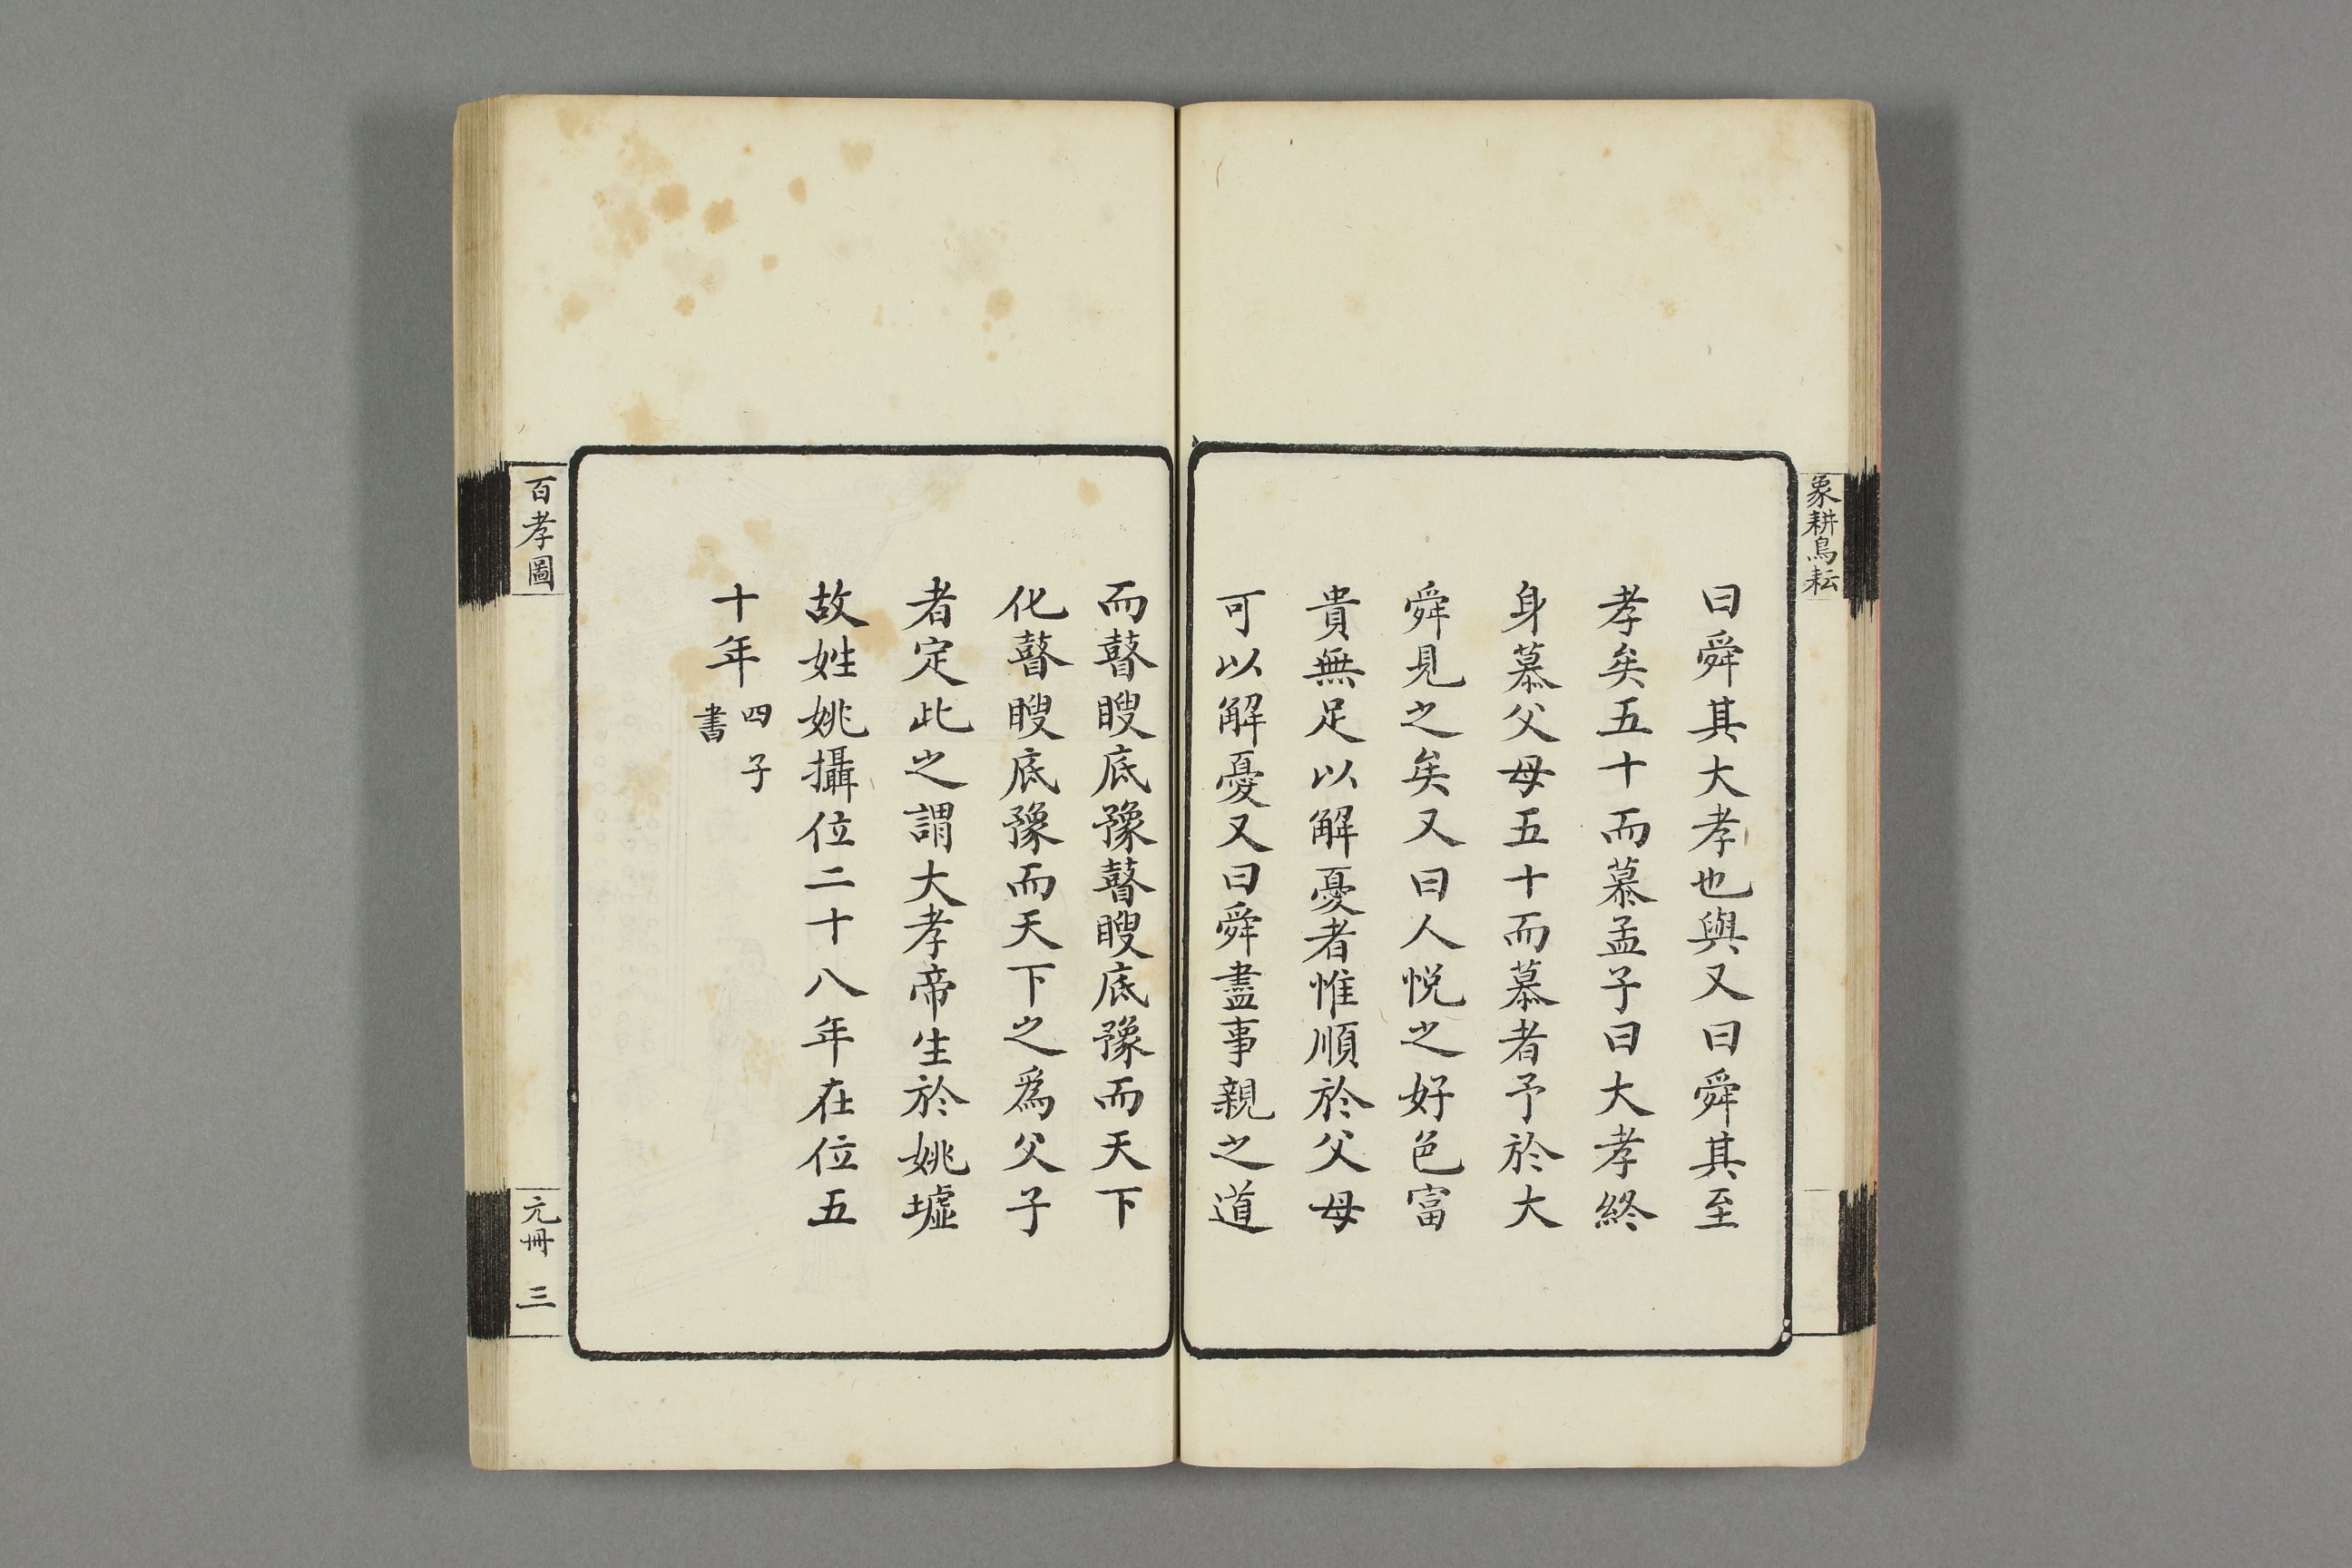 象耕鳥耘
曰舜其大孝也與又曰舜其至
孝矣五十而慕孟子曰大孝終
身慕父母五十而慕者予於大
舜見之矣又曰人悅之好色富
貴無足以解憂者惟順於父母
可以解憂又曰舜盡事親之道
而瞽瞍底豫瞽瞍底豫而天下
化瞽瞍底豫而天下之爲父子
者定此之謂大孝帝生於姚墟
故姓姚攝位二十八年在位五
十年四子書
百孝圖
元冊 三